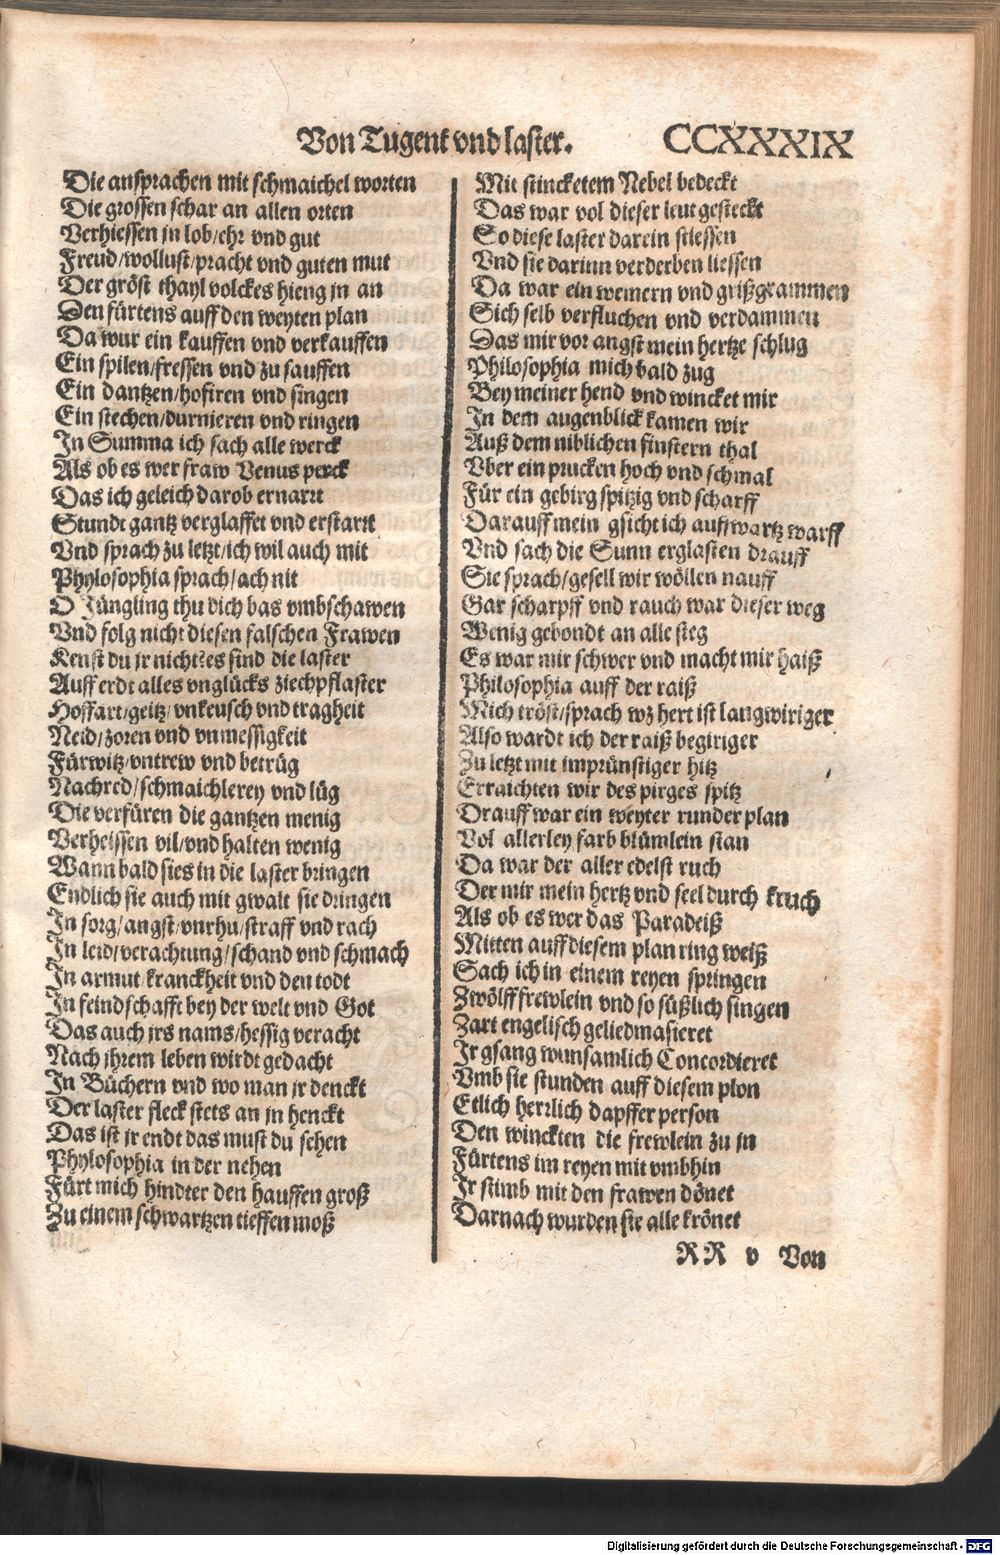 Von Tugent vnd laster. CCXXXIX
Die ansprachen mit schmaichel worten
Die grossen schar an allen orten
Verhiessen jn lob/ehr vnd gut
Freud/wollust/pracht vnd guten mut
Der gröst thayl volckes hieng jn an
Den fürtens auff den weyten plan
Da wur ein kauffen vnd verkauffen
Ein spilen/fressen vnd zu sauffen
Ein dantzen/hofiren vnd singen
Ein stechen/durnieren vnd ringen
In Summa ich sach alle werck
Als ob es wer fraw Venus perck
Das ich geleich darob ernarrt
Stundt gantz verglaffet vnd erstarrt
Vnd sprach zu letzt/ich wil auch mit
Phylosophia sprach/ach nit
O Jüngling thu dich bas vmbschawen
Vnd folg nicht diesen falschen Frawen
Kenst du jr nicht?es sind die laster
Auff erdt alles vnglücks ziechpflaster
Hoffart/geitz/vnkeusch vnd tragheit
Neid/zoren vnd vnmessigkeit
Fürwitz/vntrew vnd betrüg
Nachred/schmaichlerey vnd lüg
Die verfüren die gantzen menig
Verheissen vil/vnd halten wenig
Wann bald sies in die laster bringen
Endlich sie auch mit gwalt sie dringen
In sorg/angst/vnrhu/straff vnd rach
In leid/verachtung/schand vnd schmach
In armut/kranckheit vnd den todt
In feindschafft bey der welt vnd Got
Das auch jrs nams/hessig veracht
Nach jhrem leben wirdt gedacht
In Büchern vnd wo man jr denckt
Der laster fleck stets an jn henckt
Das ist jr endt das must du sehen
Phylosophia in der nehen
Fürt mich hindter den hauffen groß
Zu einem schwartzen tieffen moß
Mit stincketem Nebel bedeckt
Das war vol dieser leut gesteckt
So diese laster darein stiessen
Vnd sie darinn verderben liessen
Da war ein wemern vnd grißgrammen
Sich selb verfluchen vnd verdammen
Das mir vor angst mein hertze schlug
Philosophia mich bald zug
Bey meiner hend vnd wincket mir
In dem augenblick kamen wir
Auß dem niblichen finstern thal
Vber ein prucken hoch vnd schmal
Für ein gebirg spitzig vnd scharff
Darauff mein gsicht ich auffwartz warff
Vnd sach die Sunn erglasten drauff
Sie sprach/gesell wir wöllen nauff
Gar scharpff vnd rauch war dieser weg
Wenig gebondt an alle steg
Es war mir schwer vnd macht mir haiß
Philosophia auff der raiß
Mich tröst/sprach wz hert ist langwiriger
Also wardt ich der raiß begiriger
Zu letzt mit imprünstiger hitz
Erraichten wir des pirges spitz
Drauff war ein weyter runder plan
Vol allerley farb blümlein stan
Da war der aller edelst ruch
Der mir mein hertz vnd seel durch kruch
Als ob es wer das Paradeiß
Mitten auff diesem plan ring weiß
Sach ich in einem reyen springen
Zwölff frewlein vnd so süßlich singen
Zart engelisch geliedmasieret
Ir gsang wunsamlich Concordieret
Vmb sie stunden auff diesem plon
Etlich herrlich dapffer person
Den winckten die frewlein zu jn
Fürtens im reyen mit vmbhin
Ir stimb mit den frawen dönet
Darnach wurden sie alle krönet
RR v Von
Digitalisierung gefördert durch die Deutsche Forschungsgemeinschaft - DFG